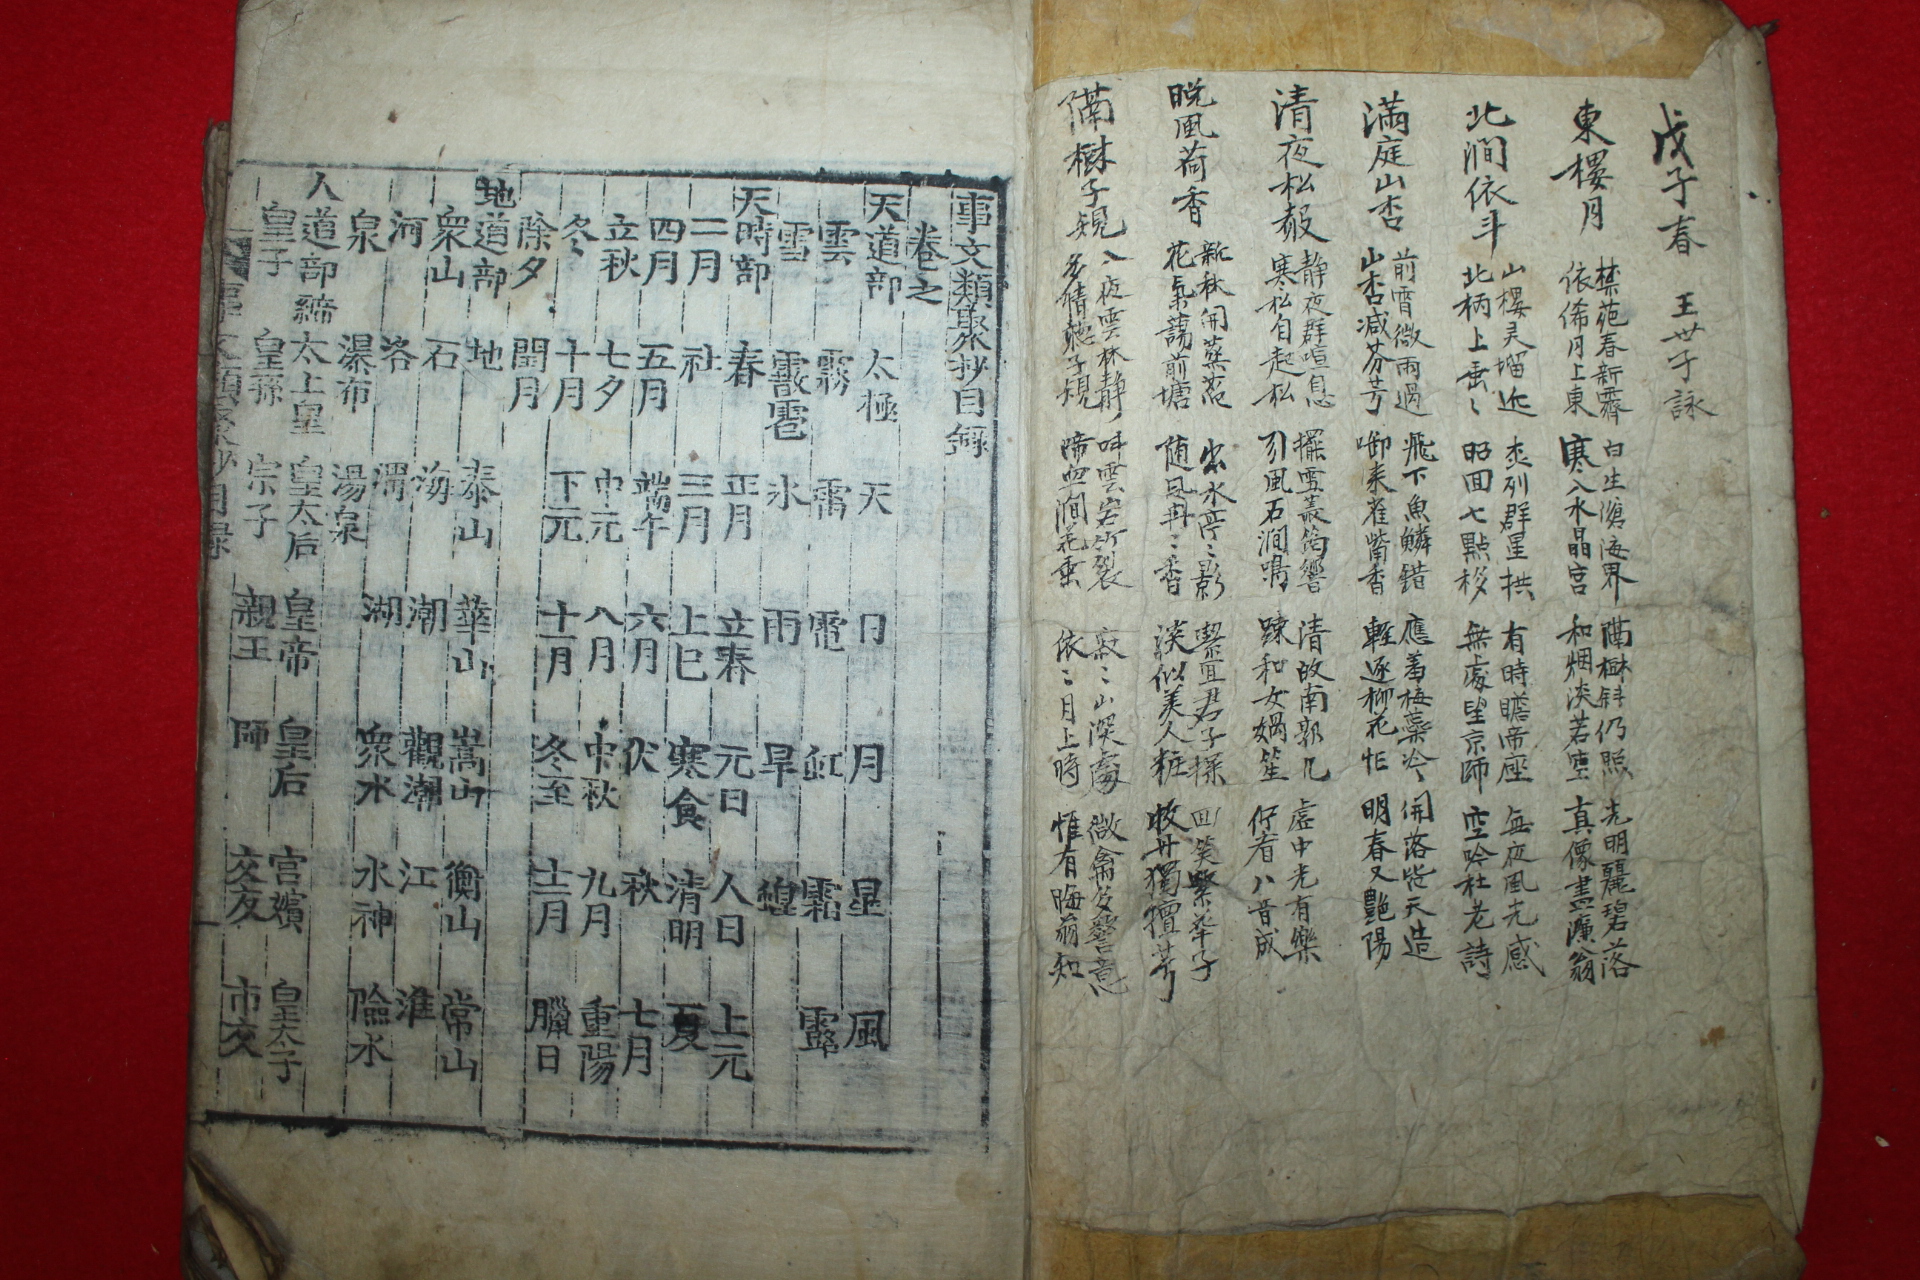 戊子春 王世子詠
東樓月 禁苑春新霽 依俙月上東 白生滄海界 寒入水晶宮 隔樹斜仍照 和烟淡若空 光明麗碧落 真像畫濂翁
北澗依斗 山樓灵塯近 北柄上垂〻 丕列群星拱 昭回七點移 有時瞻帝座 無處望京師 每夜風光感 空吟杜老詩
滿庭山杏 前宵微雨過 山杏减芬芳 飛下魚鱗錯 啣來雀觜香 應羞梅藥冷 輕逐柳花忙 開落皆天造 明春又艶陽
清夜松聲 靜夜群喧息 寒松自起松 擺雪叢筠響 引風石澗鳴 清故南郭几 踈和女媧笙 虛中光有樂 佇看八音成
晩風荷香 新秋開菡萏 花氣蕩前塘 出水亭〻影 随風冉〻香 潔宜君子操 淡似美人粧 回笑繁華子 收丹獨擅芳
隔樹子規 入夜雲林靜 多情聽子規 呌雲岩竹裂 啼血澗花垂 寂〻山深處 依〻月上時 微禽發警意 惟有晦翁知
事文類聚抄目錄
卷之
天道部 太極 天 日 月 星 風
雲 霧 雷 電 虹 霜 露
雪 霰雹 氷 雨 旱 蝗
天時部 春 正月 立春 元日 人日 上元
二月 社 三月 上巳 寒食 清明 夏
四月 五月 端午 六月 伏 秋 七月
立秋 七夕 中元 八月 中秋 九月 重陽
冬 十月 下元 十一月 冬至 十二月 臘日
除夕 閏月
地道部 地 泰山 華山 嵩山 衡山 常山
衆山 石 海 潮 觀潮 江 淮
河 洛 渭 湖 衆水 水神 險水
泉 瀑布 湯泉
人道部 締 太上皇 皇太后 皇帝 皇后 宮嬪 皇太子
皇子 皇孫 宗子 親王 師 交友 市交
事文類聚抄目録